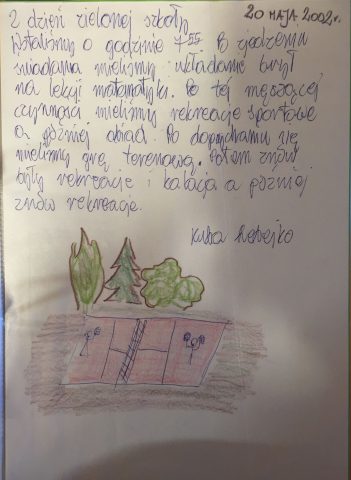 20 MAJA 2002r.
2 dzień zielonej szkoły
Wstaliśmy o godzinie 7 55 Po zjedzeniu
śniadania mieliśmy układanie brył
na lekcji matematyki. Po tej męczącej
czynności mieliśmy rekreacje sportowe
a później obiad. Po
mieliśmy grę terenową. Potem znów
były rekreacje i kolacja a później
znów rekreacje.
Kuba